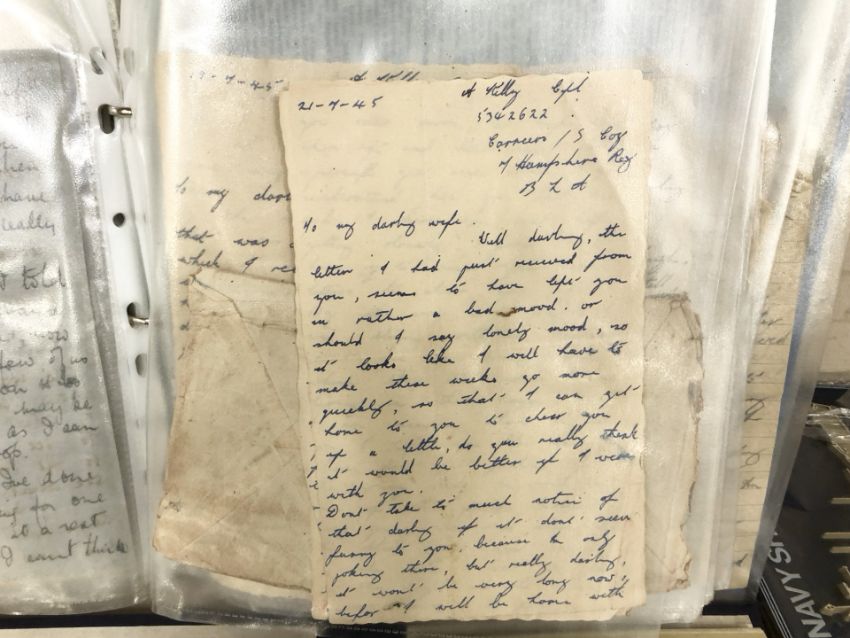 21-7-45
A Kelly Cpl
5342622
Carriers / S Coy
7 Hampshire Reg
B L A
To my darling wife.
Well darling, the
letter I had just received from
you, seems to have left you
in rather a bad mood. or
should I say lonely mood, so
it looks like I will have to
make these weeks go more
quickly, so that I can get
home to you to cheer you
up a little, do you really think
it would be better if I were
with you.
Dont take to much notice of
that darling if it dont seem
funny to you, because Im only
joking there, but really darling,
it wont be very long now,
before I will be home with
7-45
to my
that was
which I
when
have
really
told
now
few of us
may be
as I can
op.
I've done
for one
at a rest
I cant think
NAVY